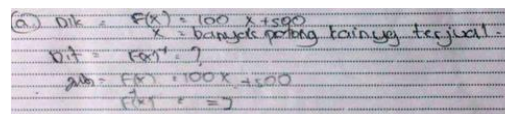 a. Dik = F(x) = 100 x + 500
x = banyak potong kain yg terjual.
Dit = F(x)⁻¹ = ?
Jwb = F(x) = 100 x + 500
F⁻¹(x) = = ?